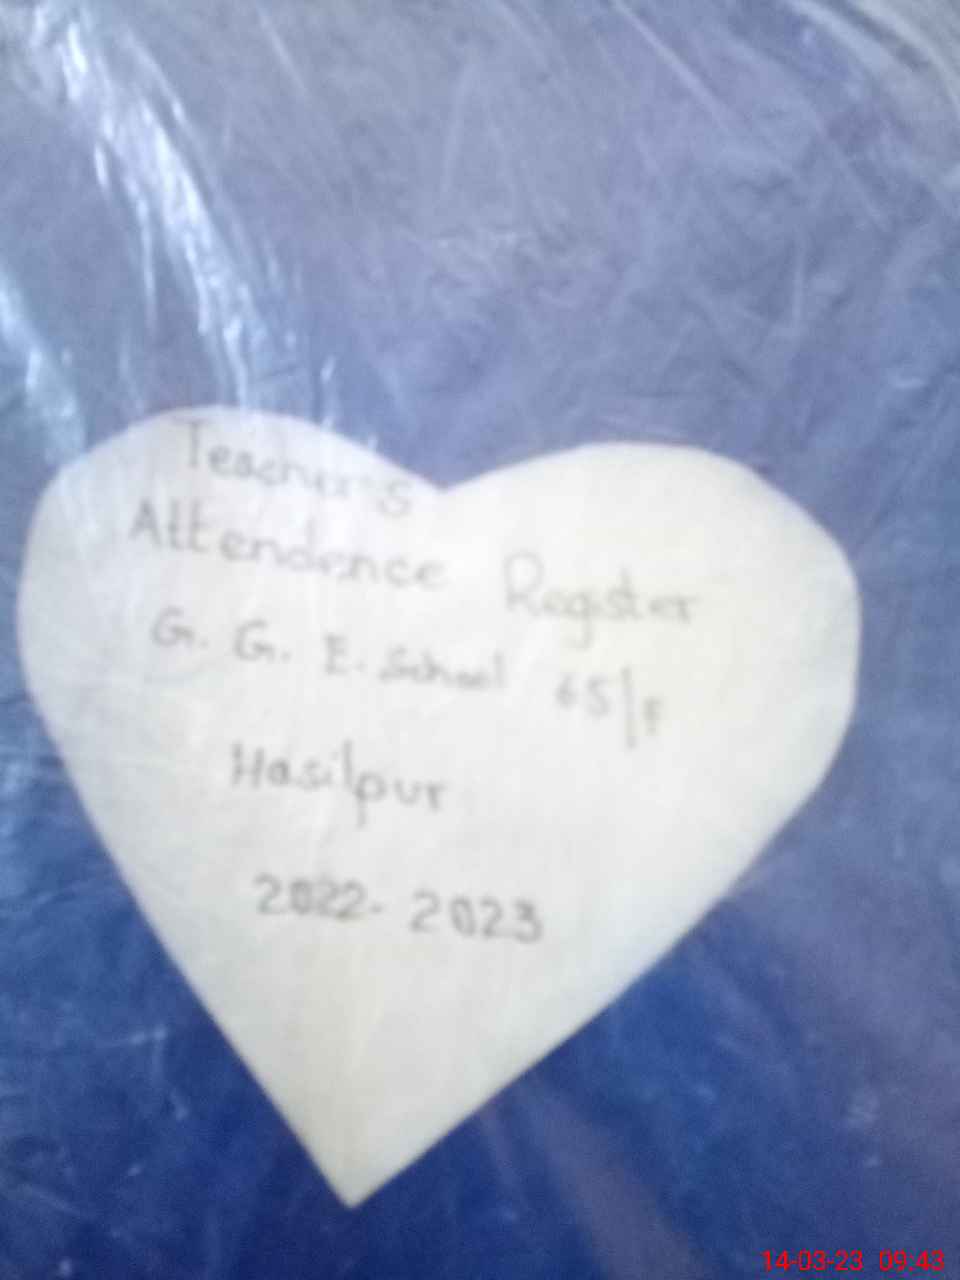 Teacher's
Attendence Register
G. G. E. School 65/F
Hasilpur
2022-2023
14-03-23 09:43